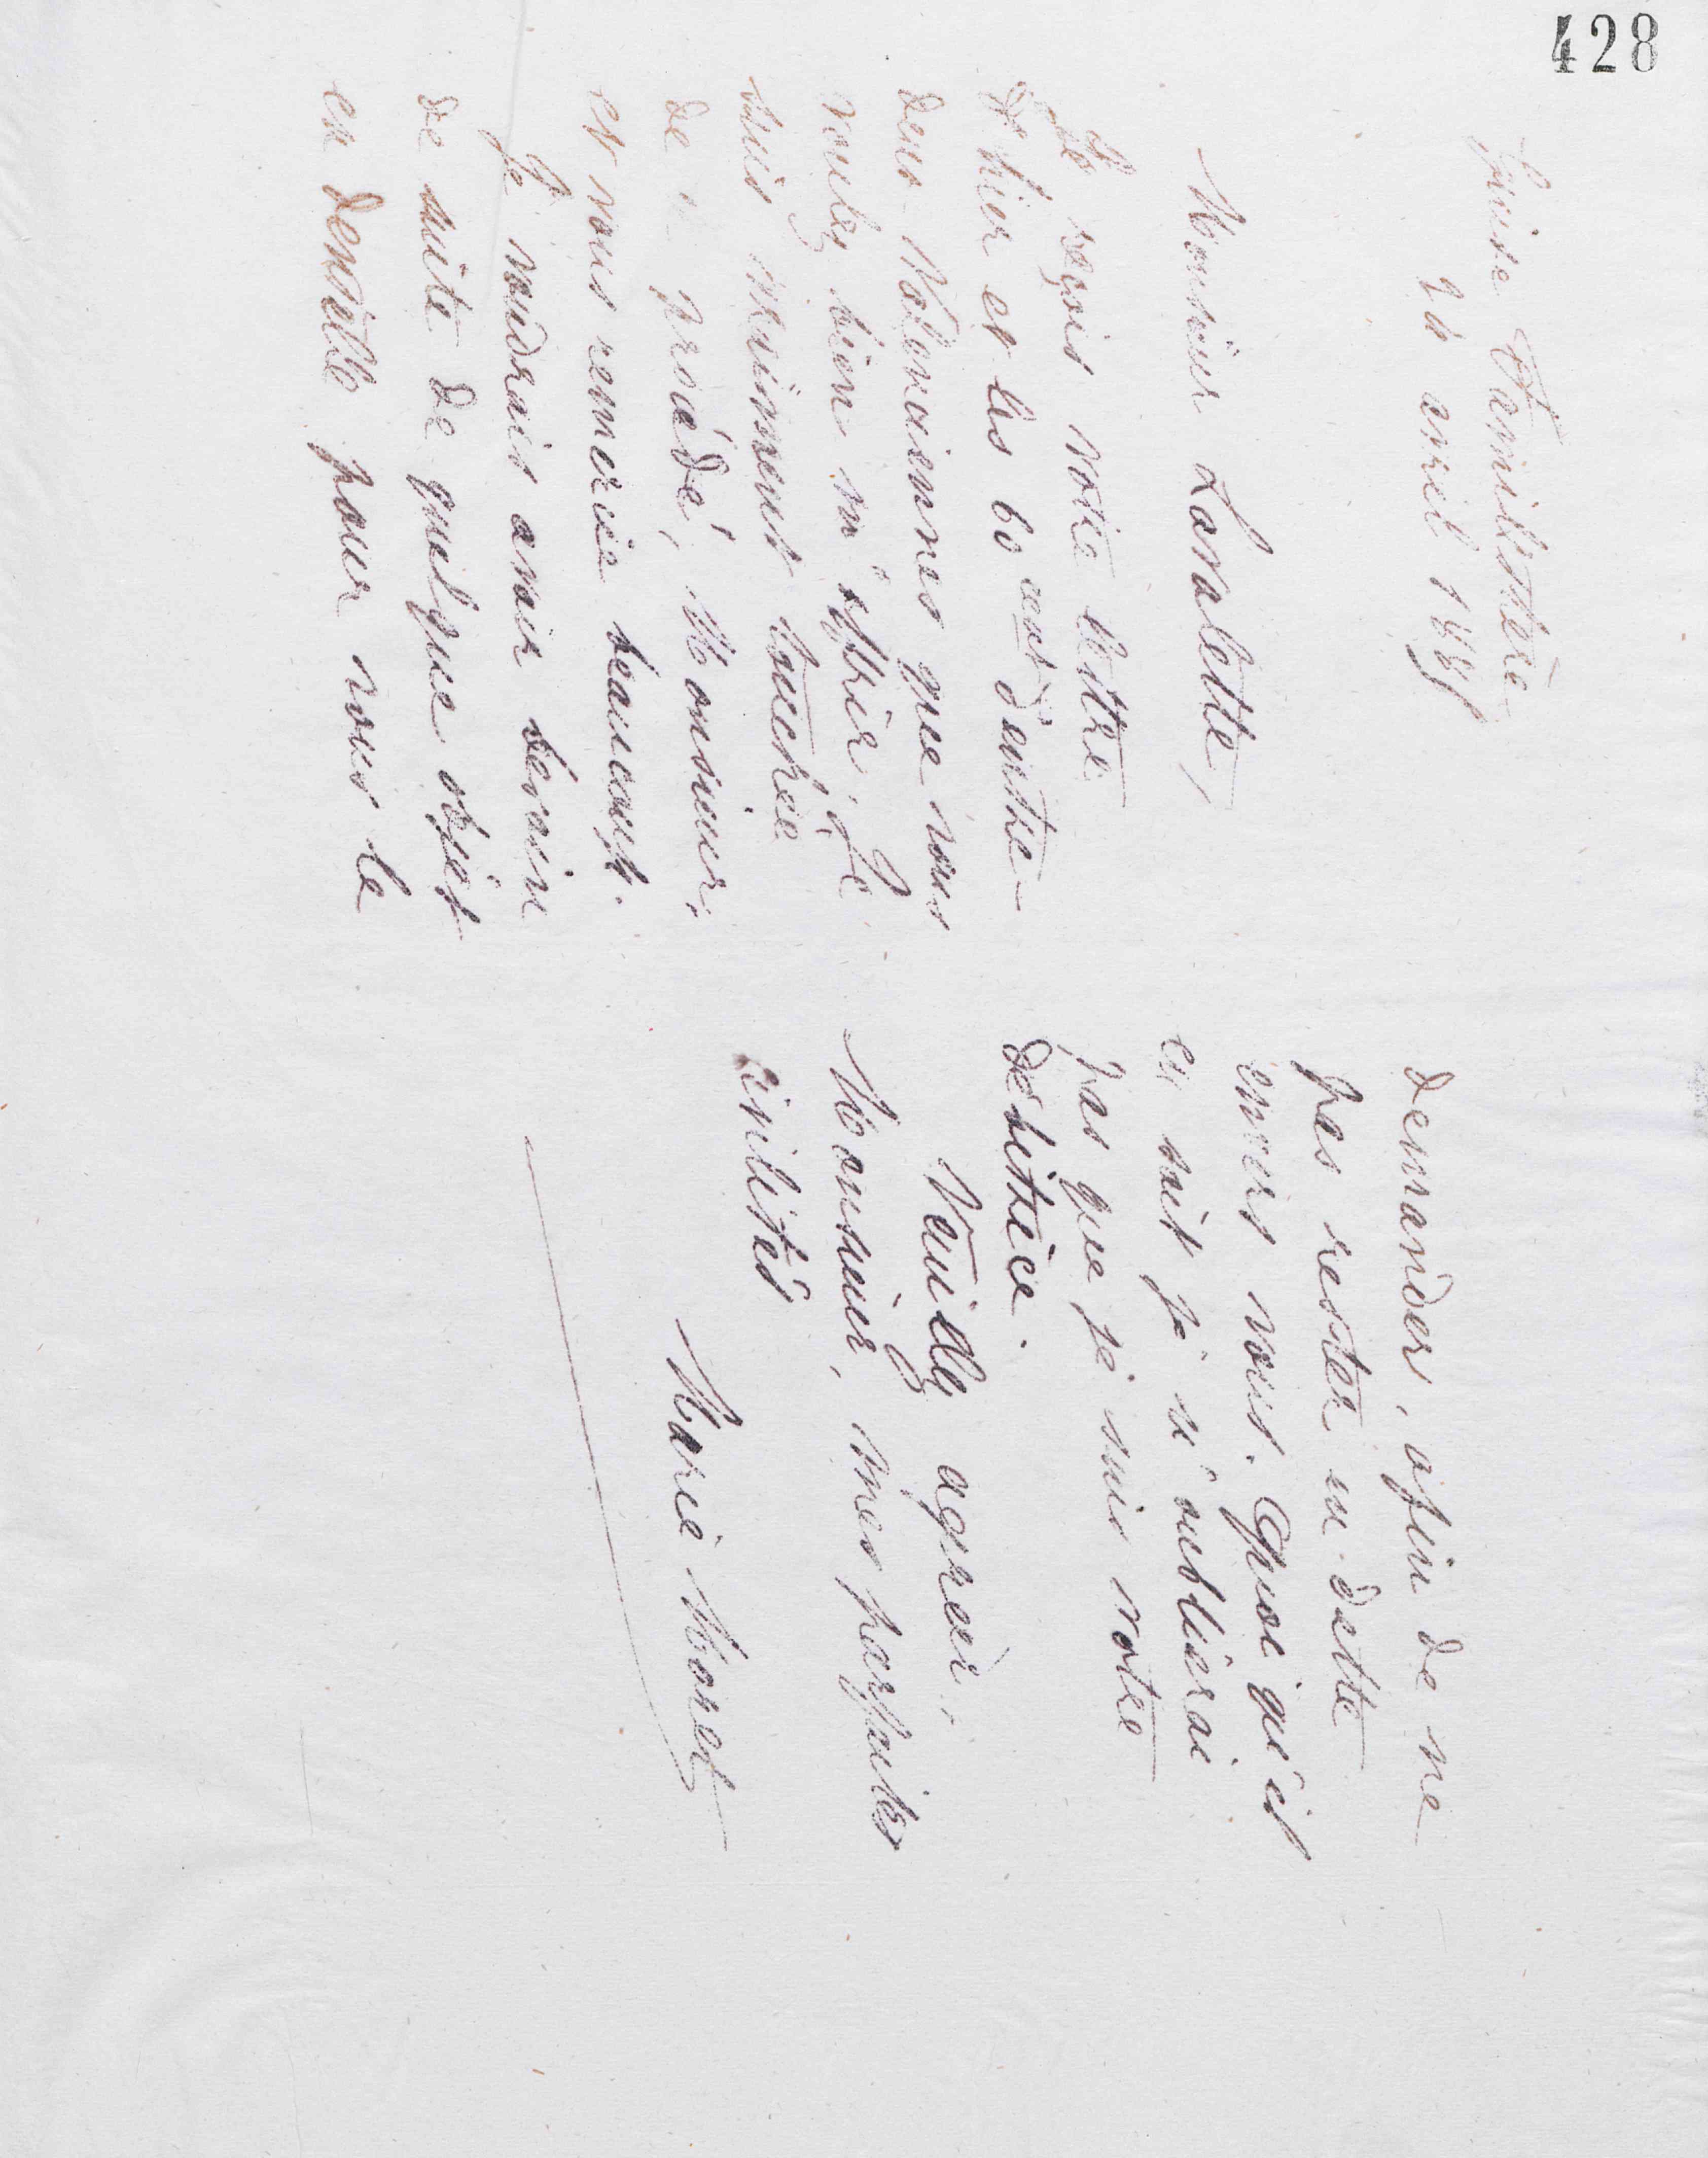 428
Guise Familistère
avril 188
Monsieur Lavalette,
Je reçois votre lettre
d'hier et les 60 cent d'entre-
deux Valenciennes que vous
voulez bien m'offrir. Je
suis vraiment touchée
de procédé, Monsieur,
et vous remercie beaucoup.
Je voudrais avoir besoin
de suite de quelque objet
en dentelle pour vous le
demander, afin de ne
pas rester en dette
envers vous. Quoi qu'il
en soit je n'oublierai
pas que je suis votre
débitrice.
Veuillez agréer,
Monsieur, mes parfaites
civilités
Marie Moret